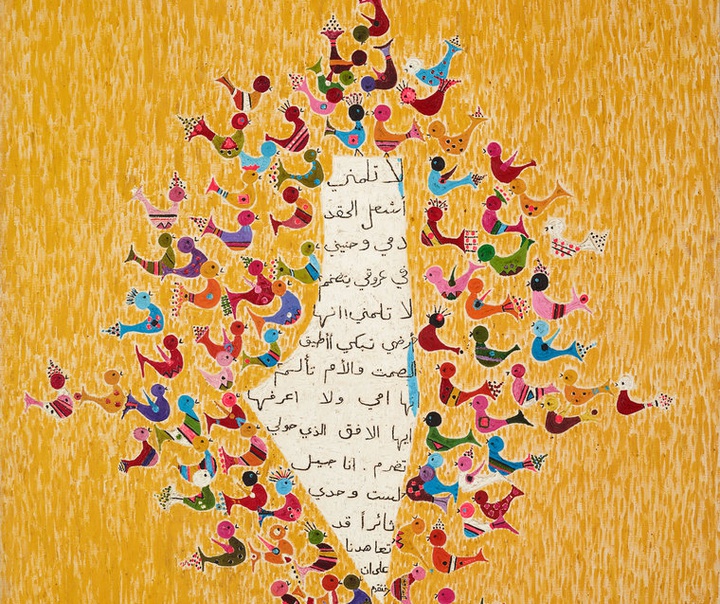 لا تلمني
أشعل الحقد
دمي وحنيني
في عروقي يتضخم
لا تلمني!! انها
أرضي تبكي أأطيق
الصمت والأم تألم
انها امي ولا اعرفها
ايها الافق الذي حولي
تضرم. انا جيل
لست وحدي
ثائراً قد
تعاهدنا
على ان